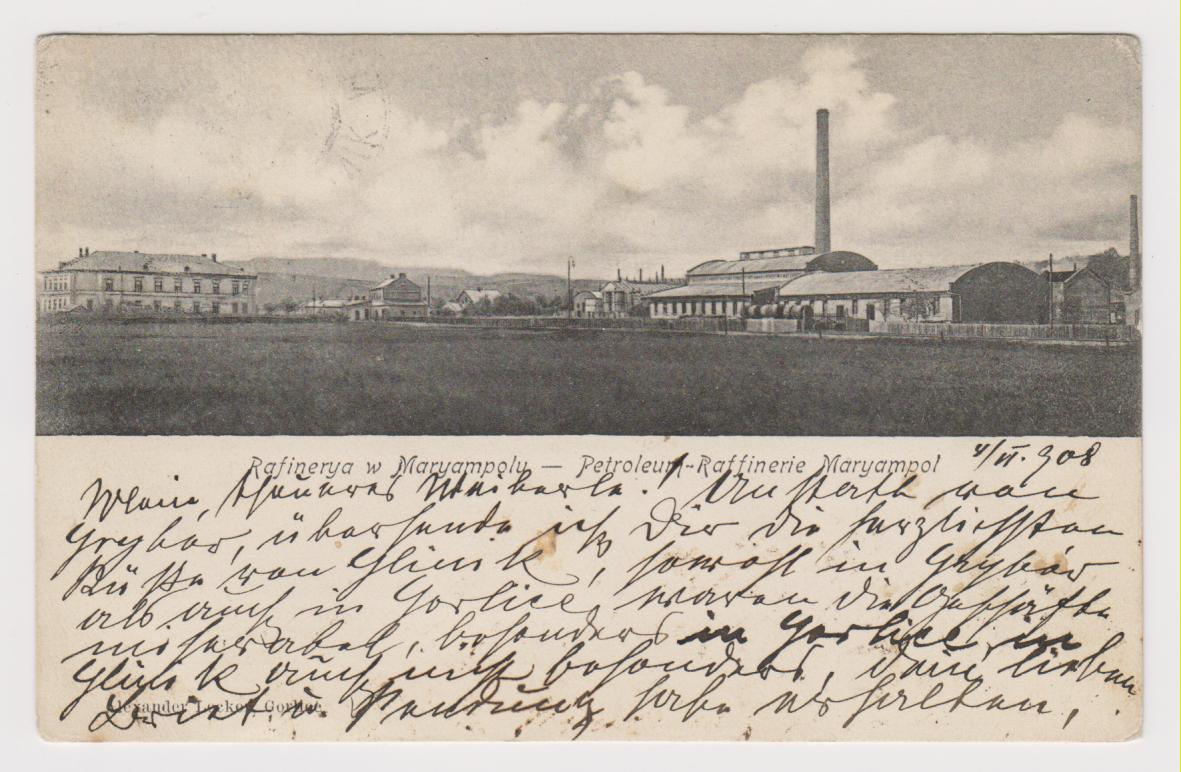 Rafinerya w Maryampolu — Petroleum-Raffinerie Maryampol
4/VI. 908
Mein, theueres Weiberle! Anstatt von
Grybów, übersende ich Dir die herzlichsten
Küße von Glinik, sowohl in Grybów
als auch in Gorlice, waren die Geschäfte
miserabel, besonders in Gorlice, in
Glinik auch nich besonders, dein lieben
Brief u. Sendung habe erhalten,
Alexander Gorlice.